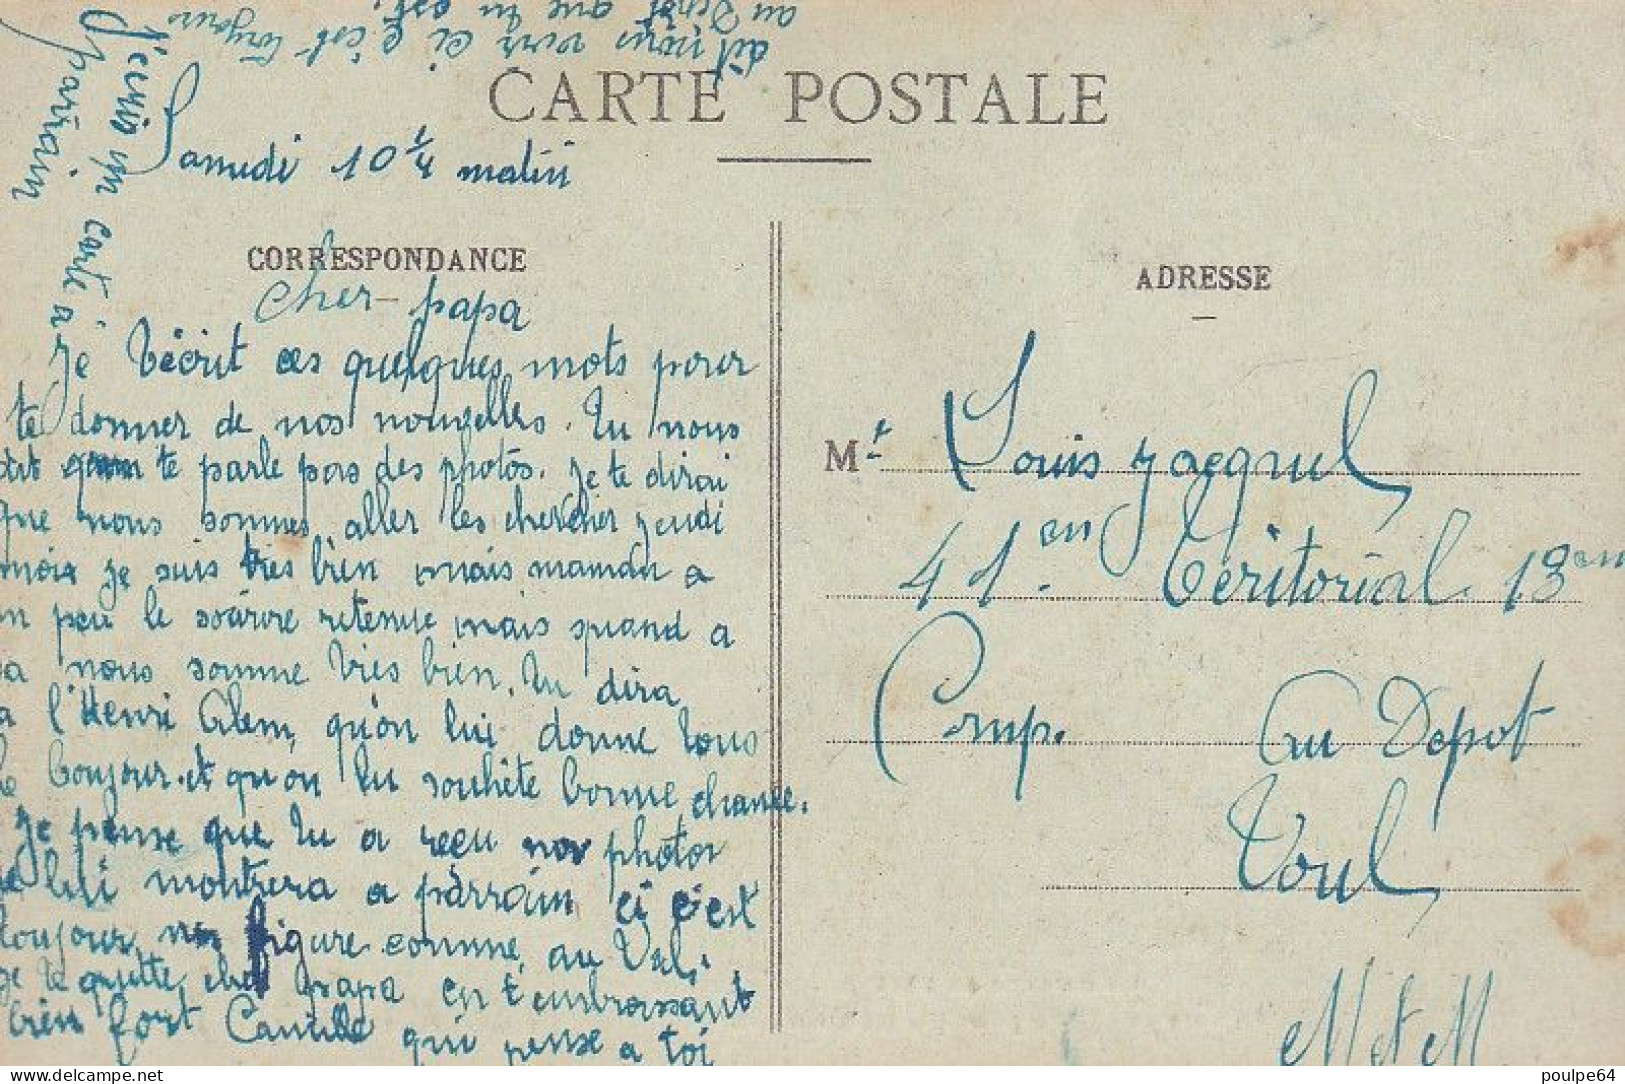 au Depot que tu est.
dit nous voir ci c'est toujours
J'ecris un carte a
parrain
CARTE POSTALE
Samedi 10 1/4 matin
CORRESPONDANCE
Cher papa
Je t'écrit ces quelques mots pour
te donner de nos nouvelles. Tu nous
dit te parle pas des photos. je te dirai
que nous sommes aller les chercher jeudi
moi je suis très bien mais maman a
un peu le retenue mais quand a
sa nous somme très bien. Tu dira
a l'Henri Clem, qu'on lui donne tous
le bonjour. et qu'on lui souhête bonne chance.
Je pense que tu a reçu nos photos
lui montrera a parrain ci c'est
toujours figure comme au Val.
je te quitte cher papa en t'embrassant
bien fort Camille qui pense a toi
ADRESSE
Mr Louis Jacquel
41en Téritorial 13em
Comp. Au Depot
Toul
M et M
delcampe.net
poulpe64